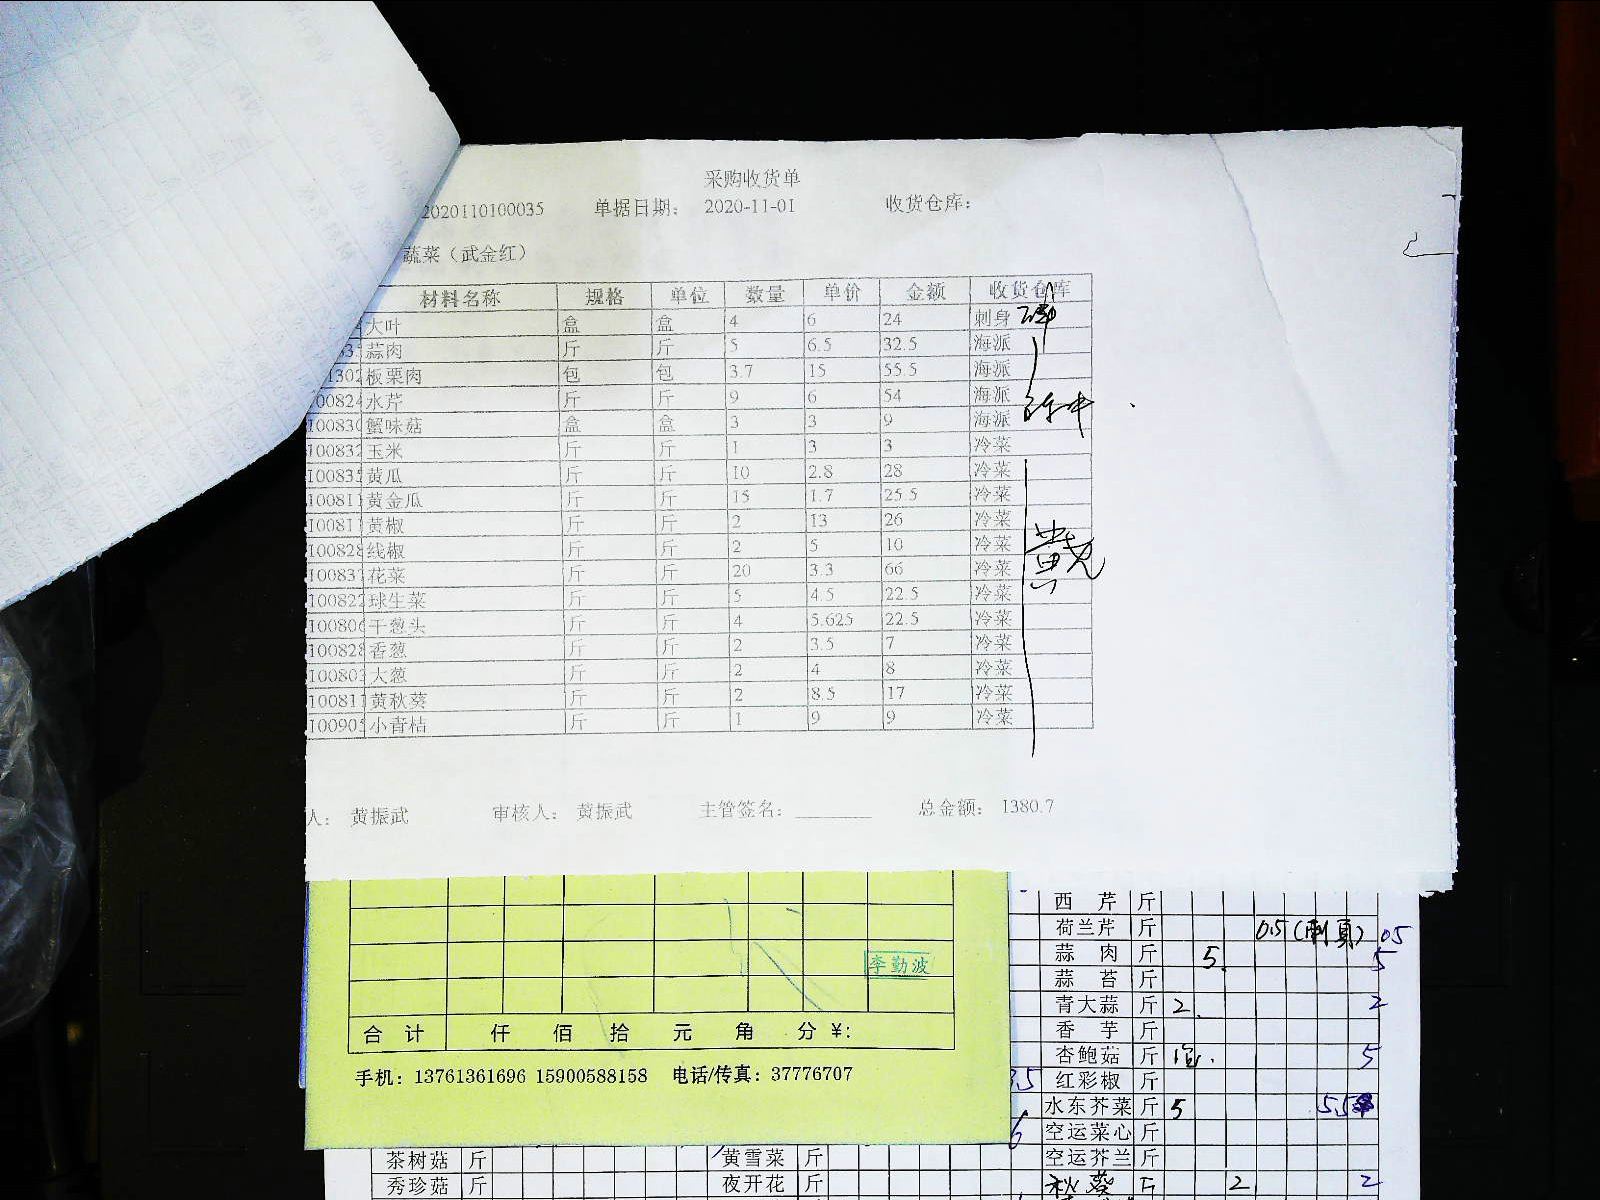 采购收货单
2020110100035 单据日期： 2020-11-01 收货仓库：
蔬菜（武金红）
材料名称 规格 单位 数量 单价 金额 收货仓库
大叶 盒 盒 4 6 24 刺身
蒜肉 斤 斤 5 6.5 32.5 海派
1302 板栗肉 包 包 3.7 15 55.5 海派
100824 水芹 斤 斤 9 6 54 海派
100830 蟹味菇 盒 盒 3 3 9 海派
100832 玉米 斤 斤 1 3 3 冷菜
100835 黄瓜 斤 斤 10 2.8 28 冷菜
100811 黄金瓜 斤 斤 15 1.7 25.5 冷菜
100811 黄椒 斤 斤 2 13 26 冷菜
100828 线椒 斤 斤 2 5 10 冷菜
100837 花菜 斤 斤 20 3.3 66 冷菜
100822 球生菜 斤 斤 5 4.5 22.5 冷菜
100806 干葱头 斤 斤 4 5.625 22.5 冷菜
100828 香葱 斤 斤 2 3.5 7 冷菜
100803 大葱 斤 斤 2 4 8 冷菜
100811 黄秋葵 斤 斤 2 8.5 17 冷菜
100905 小青桔 斤 斤 1 9 9 冷菜
人： 黄振武 审核人： 黄振武 主管签名：________ 总金额： 1380.7
李勤波
合 计 仟 佰 拾 元 角 分 ¥:
手机：13761361696 15900588158 电话/传真：37776707
西 芹 斤
荷兰芹 斤 0.5 0.5
蒜 肉 斤 5 5
蒜 苔 斤
青大蒜 斤 2 2
香 芋 斤
杏鲍菇 斤 5
红彩椒 斤
水东芥菜 斤 5 5.5
空运菜心 斤
茶树菇 斤 黄雪菜 斤 空运芥兰 斤
秀珍菇 斤 夜开花 斤 秋葵 斤 2 2